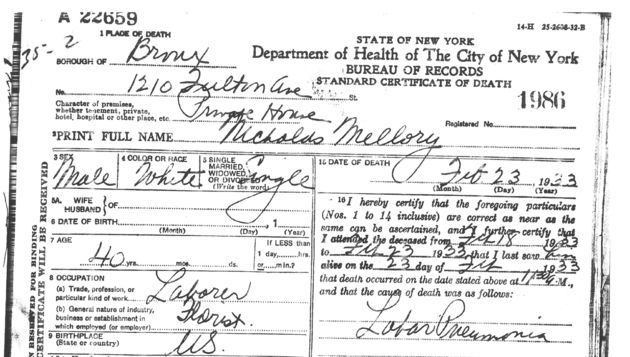 A 22659
14-H 25-2608-32-B
35-2
1 PLACE OF DEATH
STATE OF NEW YORK
BOROUGH OF Bronx
Department of Health of The City of New York
BUREAU OF RECORDS
No. 1210 Fulton Ave St.
STANDARD CERTIFICATE OF DEATH
Character of premises,
whether tenement, private,
hotel, hospital or other place, etc. Private House
1986
Registered No.
2 PRINT FULL NAME Nicholas Mellory
3 SEX Male
4 COLOR OR RACE White
5 SINGLE, MARRIED, WIDOWED, OR DIVORCED (Write the word) Single
15 DATE OF DEATH Feb 23 1933
(Month) (Day) (Year)
5A WIFE
HUSBAND } OF
6 DATE OF BIRTH , 1
(Month) (Day) (Year)
7 AGE 40 yrs. mos. ds.
If LESS than
1 day, hrs.
or min.?
8 OCCUPATION
(a) Trade, profession, or
particular kind of work Laborer
(b) General nature of industry,
business or establishment in
which employed (or employer) Florist
9 BIRTHPLACE
(State or country) US.
16 I hereby certify that the foregoing particulars
(Nos. 1 to 14 inclusive) are correct as near as the
same can be ascertained, and I further certify that
I attended the deceased from Feb 18 1933
to Feb 23 1933 that I last saw him
alive on the 23 day of Feb 1933
that death occurred on the date stated above at M.,
and that the cause of death was as follows:
Lobar Pneumonia
RESERVED FOR BINDING
CERTIFICATE WILL BE RECEIVED